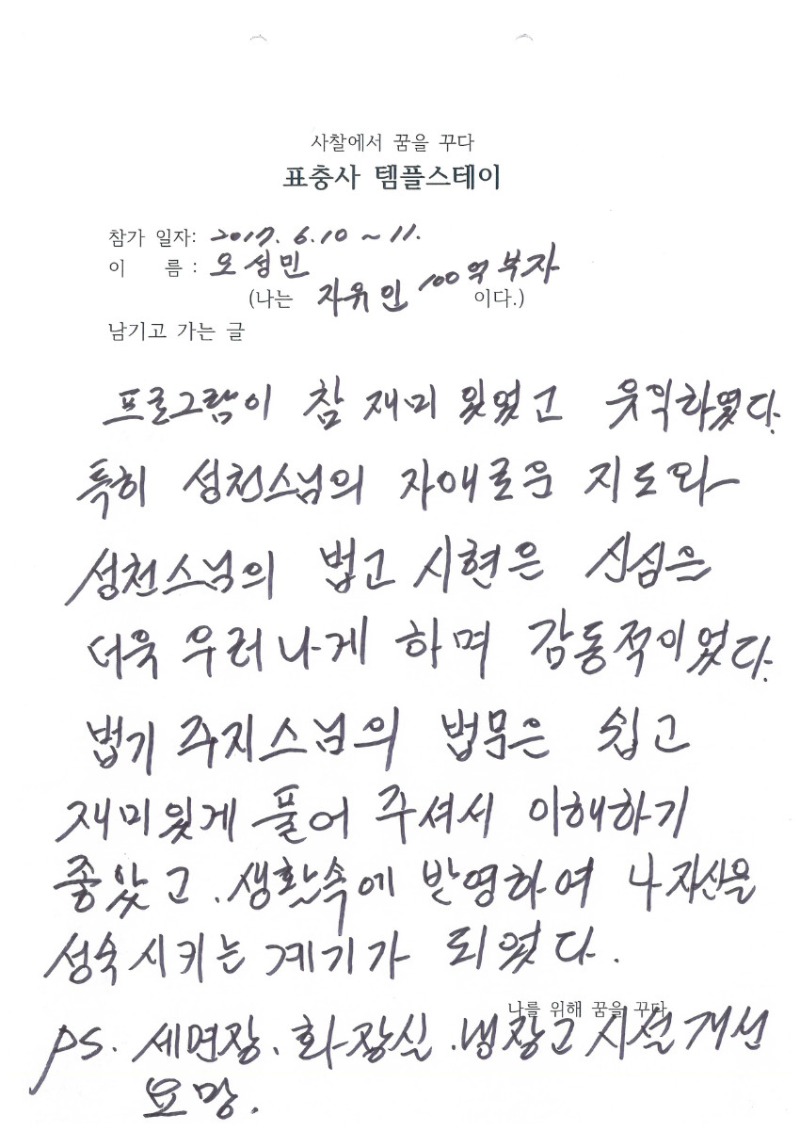 사찰에서 꿈을 꾸다
표충사 템플스테이
참가 일자: 2017. 6.10 ~ 11.
이 름 : 오성민
(나는 자유인 100억 부자 이다.)
남기고 가는 글
프로그람이 참 재미 있었고 유익하였다.
특히 성천스님의 자애로운 지도와
성천스님의 법고 시현은 신심을
더욱 우러나게 하며 감동적이었다.
법기 주지스님의 법문은 쉽고
재미있게 풀어 주셔서 이해하기
좋았고, 생활속에 반영하여 나 자신을
성숙시키는 계기가 되었다.
나를 위해 꿈을 꾸다
PS. 세면장, 화장실, 냉장고 시설 개선
요망.